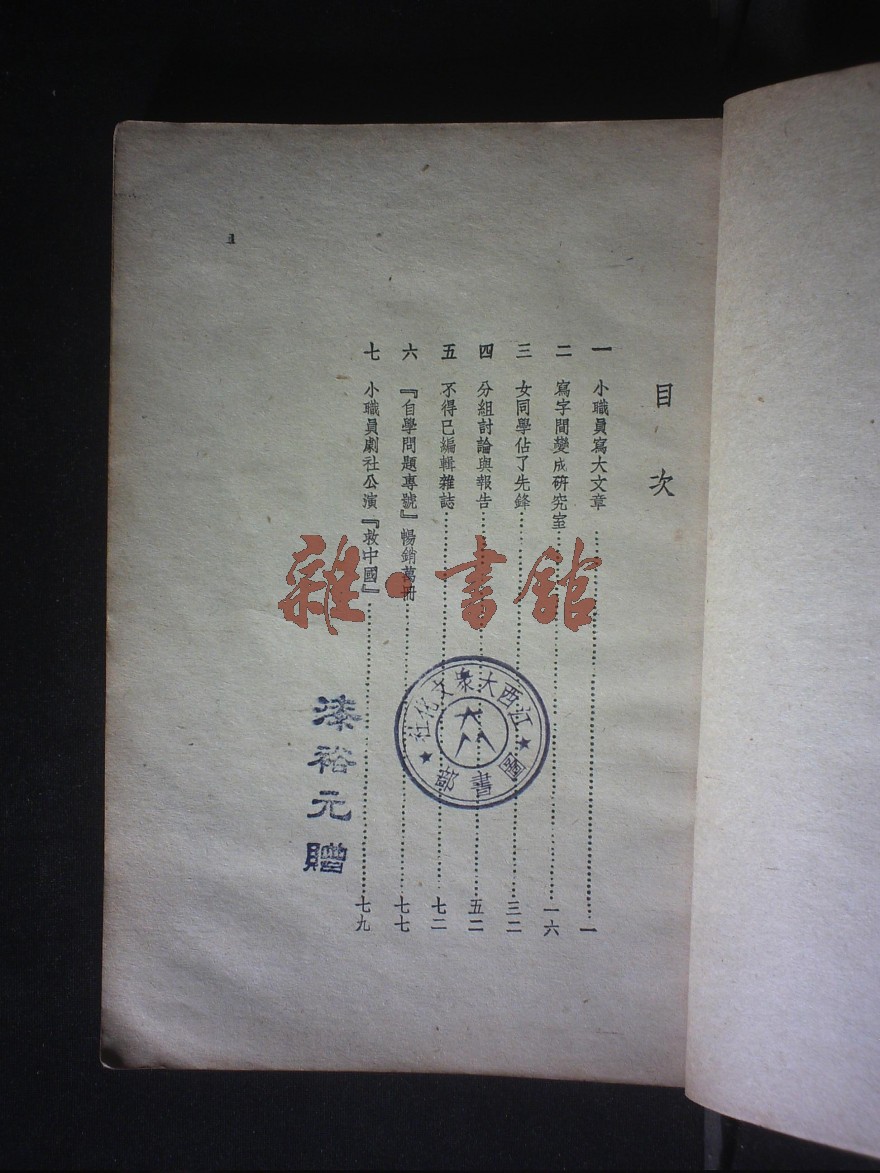 目次
一 小職員寫大文章 一
二 寫字間變成研究室 一六
三 女同學佔了先鋒 三二
四 分組討論與報告 五二
五 不得已編輯雜誌 七二
六 『自學問題專號』暢銷萬冊 七七
七 小職員劇社公演『救中國』 七九
1
江西大衆文化社
圖書部
漆裕元贈
雜·書館